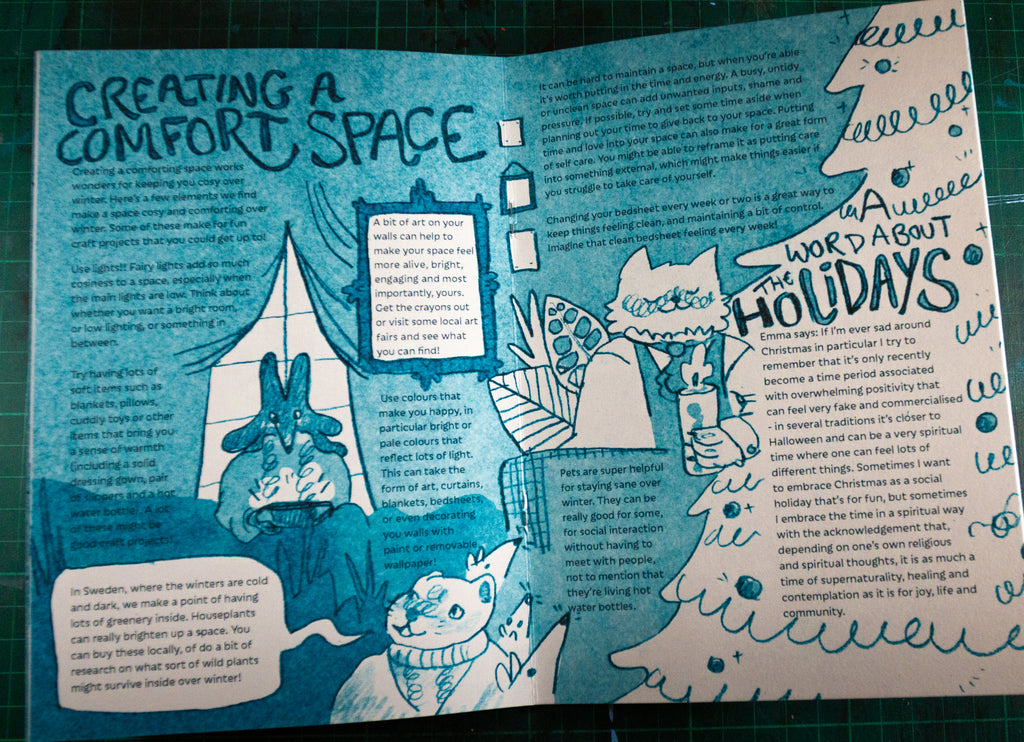 CREATING A
COMFORT SPACE
Creating a comforting space works
wonders for keeping you cosy over
winter. Here's a few elements we find
make a space cosy and comforting over
winter. Some of these make for fun
craft projects that you could get up to!
Use lights!! Fairy lights add so much
cosiness to a space, especially when
the main lights are low. Think about
whether you want a bright room,
or low lighting, or something in
between.
Try having lots of
soft items such as
blankets, pillows,
cuddly toys or other
items that bring you
a sense of warmth
(including a solid
dressing gown, pair
of slippers and a hot
water bottle). A lot
of these might be
good craft projects!
In Sweden, where the winters are cold
and dark, we make a point of having
lots of greenery inside. Houseplants
can really brighten up a space. You
can buy these locally, of do a bit of
research on what sort of wild plants
might survive inside over winter!
A bit of art on your
walls can help to
make your space feel
more alive, bright,
engaging and most
importantly, yours.
Get the crayons out
or visit some local art
fairs and see what
you can find!
Use colours that
make you happy, in
particular bright or
pale colours that
reflect lots of light.
This can take the
form of art, curtains,
blankets, bedsheets,
or even decorating
you walls with
paint or removable
wallpaper!
It can be hard to maintain a space, but when you're able
it's worth putting in the time and energy. A busy, untidy
or unclean space can add unwanted inputs, shame and
pressure. If possible, try and set some time aside when
planning out your time to give back to your space. Putting
time and love into your space can also make for a great form
of self care. You might be able to reframe it as putting care
into something external, which might make things easier if
you struggle to take care of yourself.
Changing your bedsheet every week or two is a great way to
keep things feeling clean, and maintaining a bit of control.
Imagine that clean bedsheet feeling every week!
Pets are super helpful
for staying sane over
winter. They can be
really good for some,
for social interaction
without having to
meet with people,
not to mention that
they're living hot
water bottles.
A
WORD ABOUT
THE HOLIDAYS
Emma says: If I'm ever sad around
Christmas in particular I try to
remember that it's only recently
become a time period associated
with overwhelming positivity that
can feel very fake and commercialised
- in several traditions it's closer to
Halloween and can be a very spiritual
time where one can feel lots of
different things. Sometimes I want
to embrace Christmas as a social
holiday that's for fun, but sometimes
I embrace the time in a spiritual way
with the acknowledgement that,
depending on one's own religious
and spiritual thoughts, it is as much a
time of supernaturality, healing and
contemplation as it is for joy, life and
community.